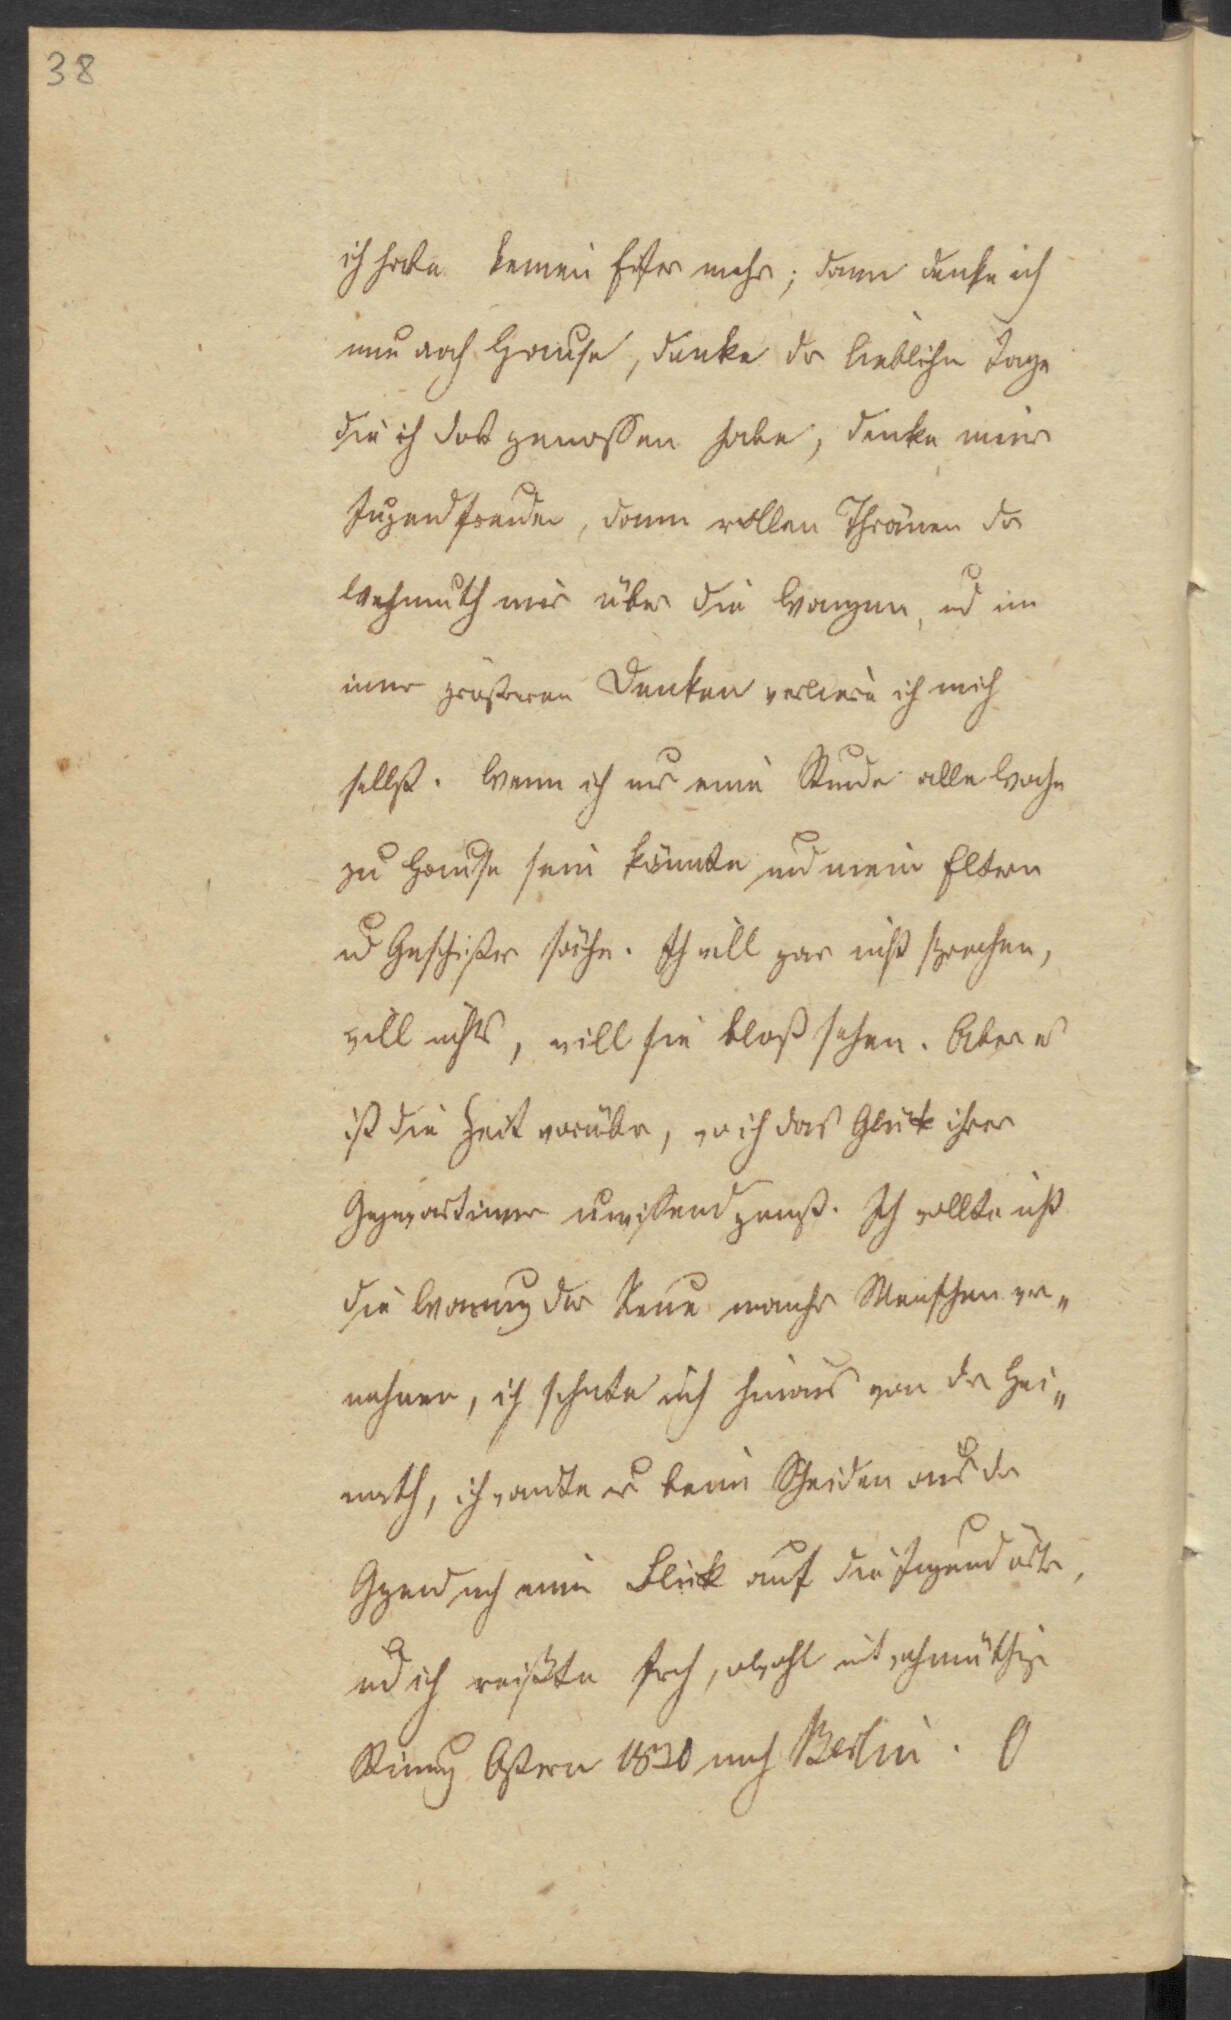 38
ich habe keinen Eifer mehr; dann denke ich
nur nach Hause, denke der lieblichen Tage
die ich dort genossen habe, denke meiner
Jugendfreuden, dann rollen Thränen der
Wehmuth mir über die Wangen, und im
immer größeren Denken verliere ich mich
selbst. Wenn ich nur eine Stunde alle Woche
zu Hause sein könnte und meine Eltern
und Geschwister sähe. Ich will gar nicht sprechen,
will nichts, will sie bloß sehen. Aber es
ist die Zeit vorüber, wo ich das Glück ihrer
Gegenwart immer unwissend genoß. Ich wollte nicht
die Warnung der Reue mancher Menschen ver„
nehmen, ich sehnte mich hinaus von der Hei„
math, ich wandte beim Scheiden aus der
Gegend noch einen Blick auf die Jugendörter,
und ich reiste froh, obwohl mit wehmüthiger
Stimmung Ostern 1830 nach Berlin. O